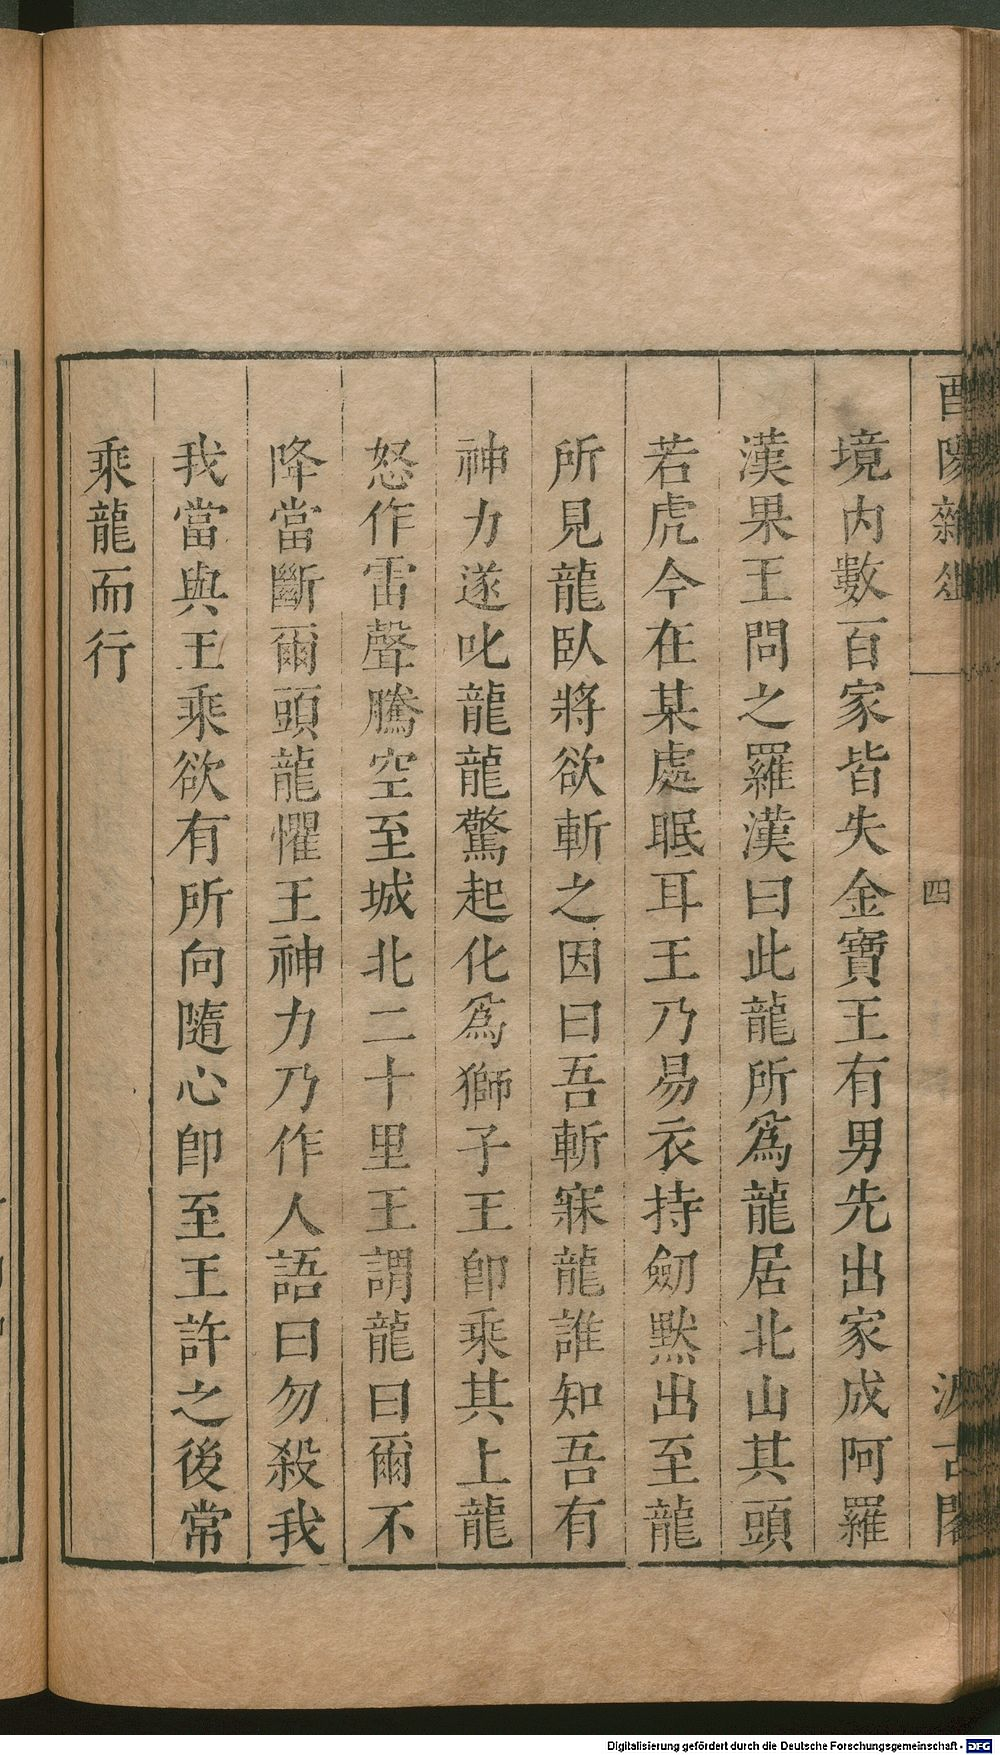 酉陽雜俎
四
汲古閣
境內數百家皆失金寶王有男先出家成阿羅
漢果王問之羅漢曰此龍所爲龍居北山其頭
若虎今在某處眠耳王乃易衣持劒默出至龍
所見龍臥將欲斬之因曰吾斬寐龍誰知吾有
神力遂叱龍龍驚起化爲獅子王卽乘其上龍
怒作雷聲騰空至城北二十里王謂龍曰爾不
降當斷爾頭龍懼王神力乃作人語曰勿殺我
我當與王乘欲有所向隨心卽至王許之後常
乘龍而行
Digitalisierung gefördert durch die Deutsche Forschungsgemeinschaft - DFG